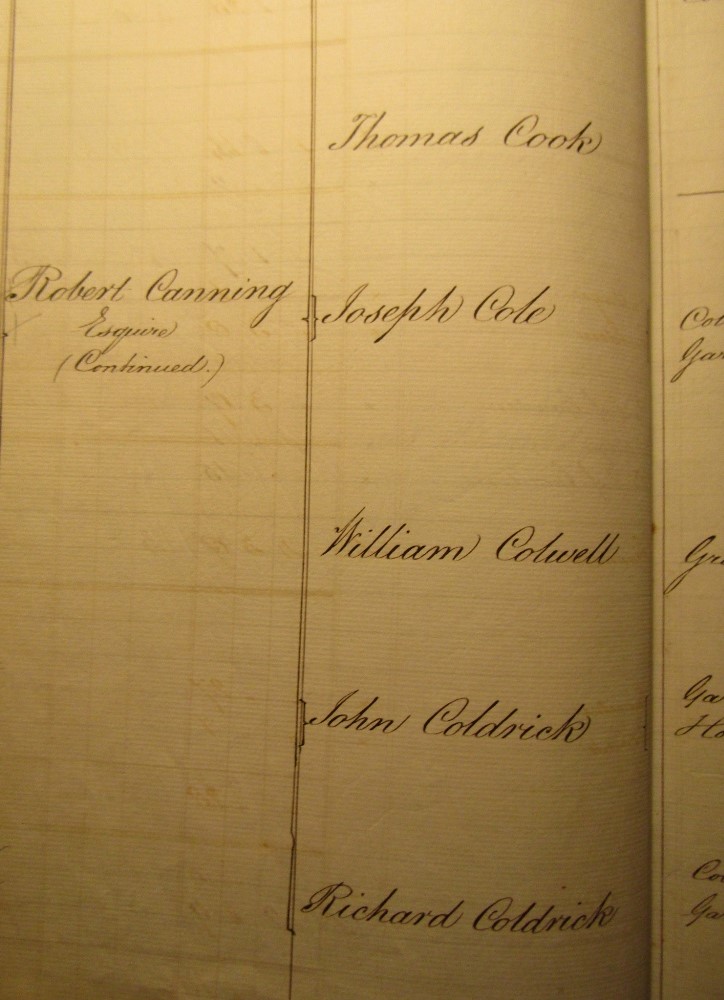 Thomas Cook
Robert Canning
Esquire
(Continued.)
Joseph Cole
William Colwell
John Coldrick
Richard Coldrick